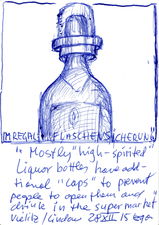 IM REGAL: FLASCHENSICHERUNG
"Mostly "high-spirited"
Liquor bottles have addi-
tional "caps" to prevent
people to open them and
drink in the supermarket"
29 XII 15